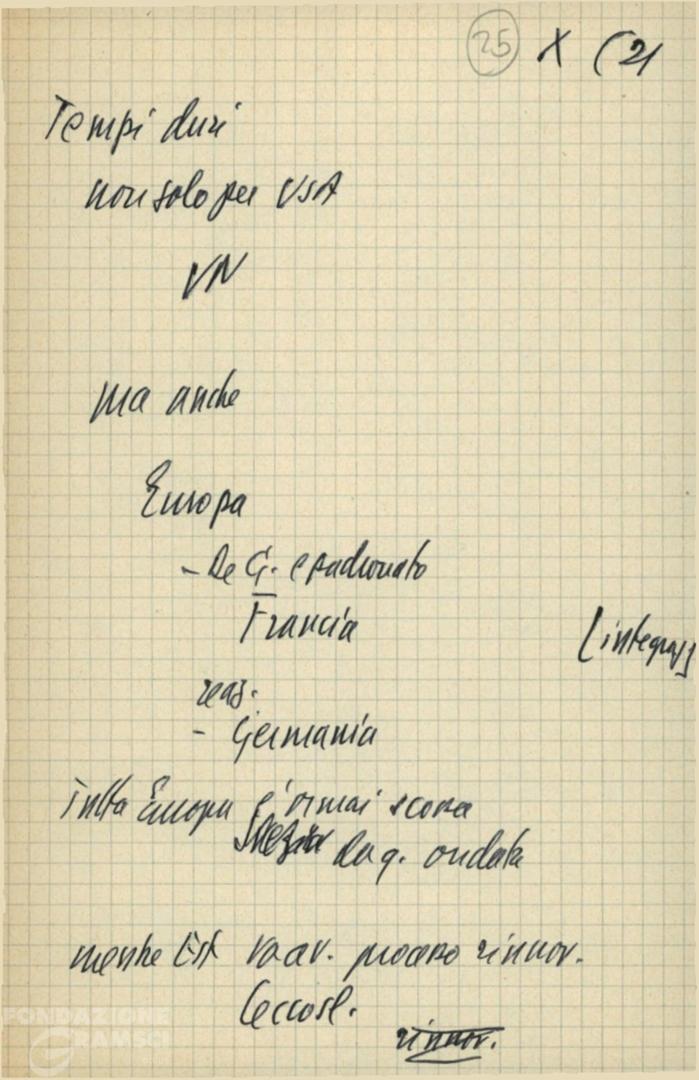 25 X (21
Tempi duri
non solo per USA
VN
ma anche
Europa
- De G. e padronato
Francia
[integraz]
reaz.
- Germania
Tutta Europa è ormai scossa
da q. ondata
mentre Est va av. processo rinnov.
Cecosl.
rinnov.
FONDAZIONE
GRAMSCI